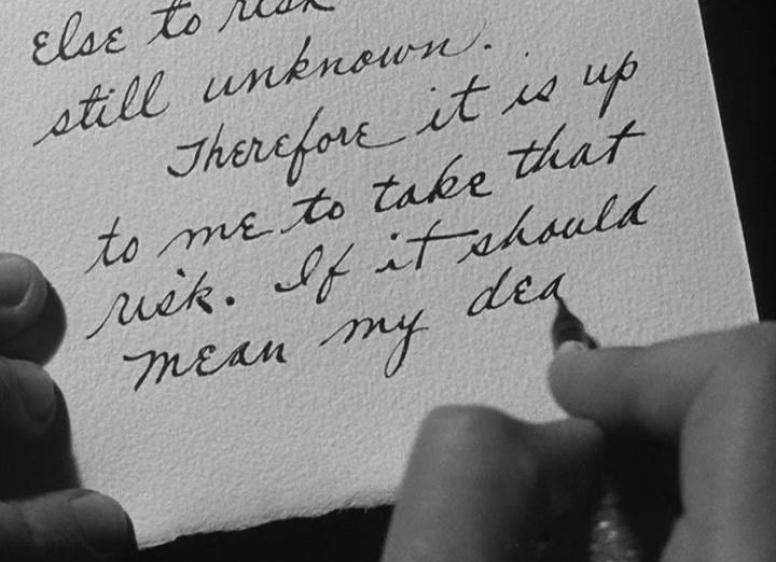 Else to risk
still unknown.
Therefore it is up
to me to take that
risk. If it should
mean my dea